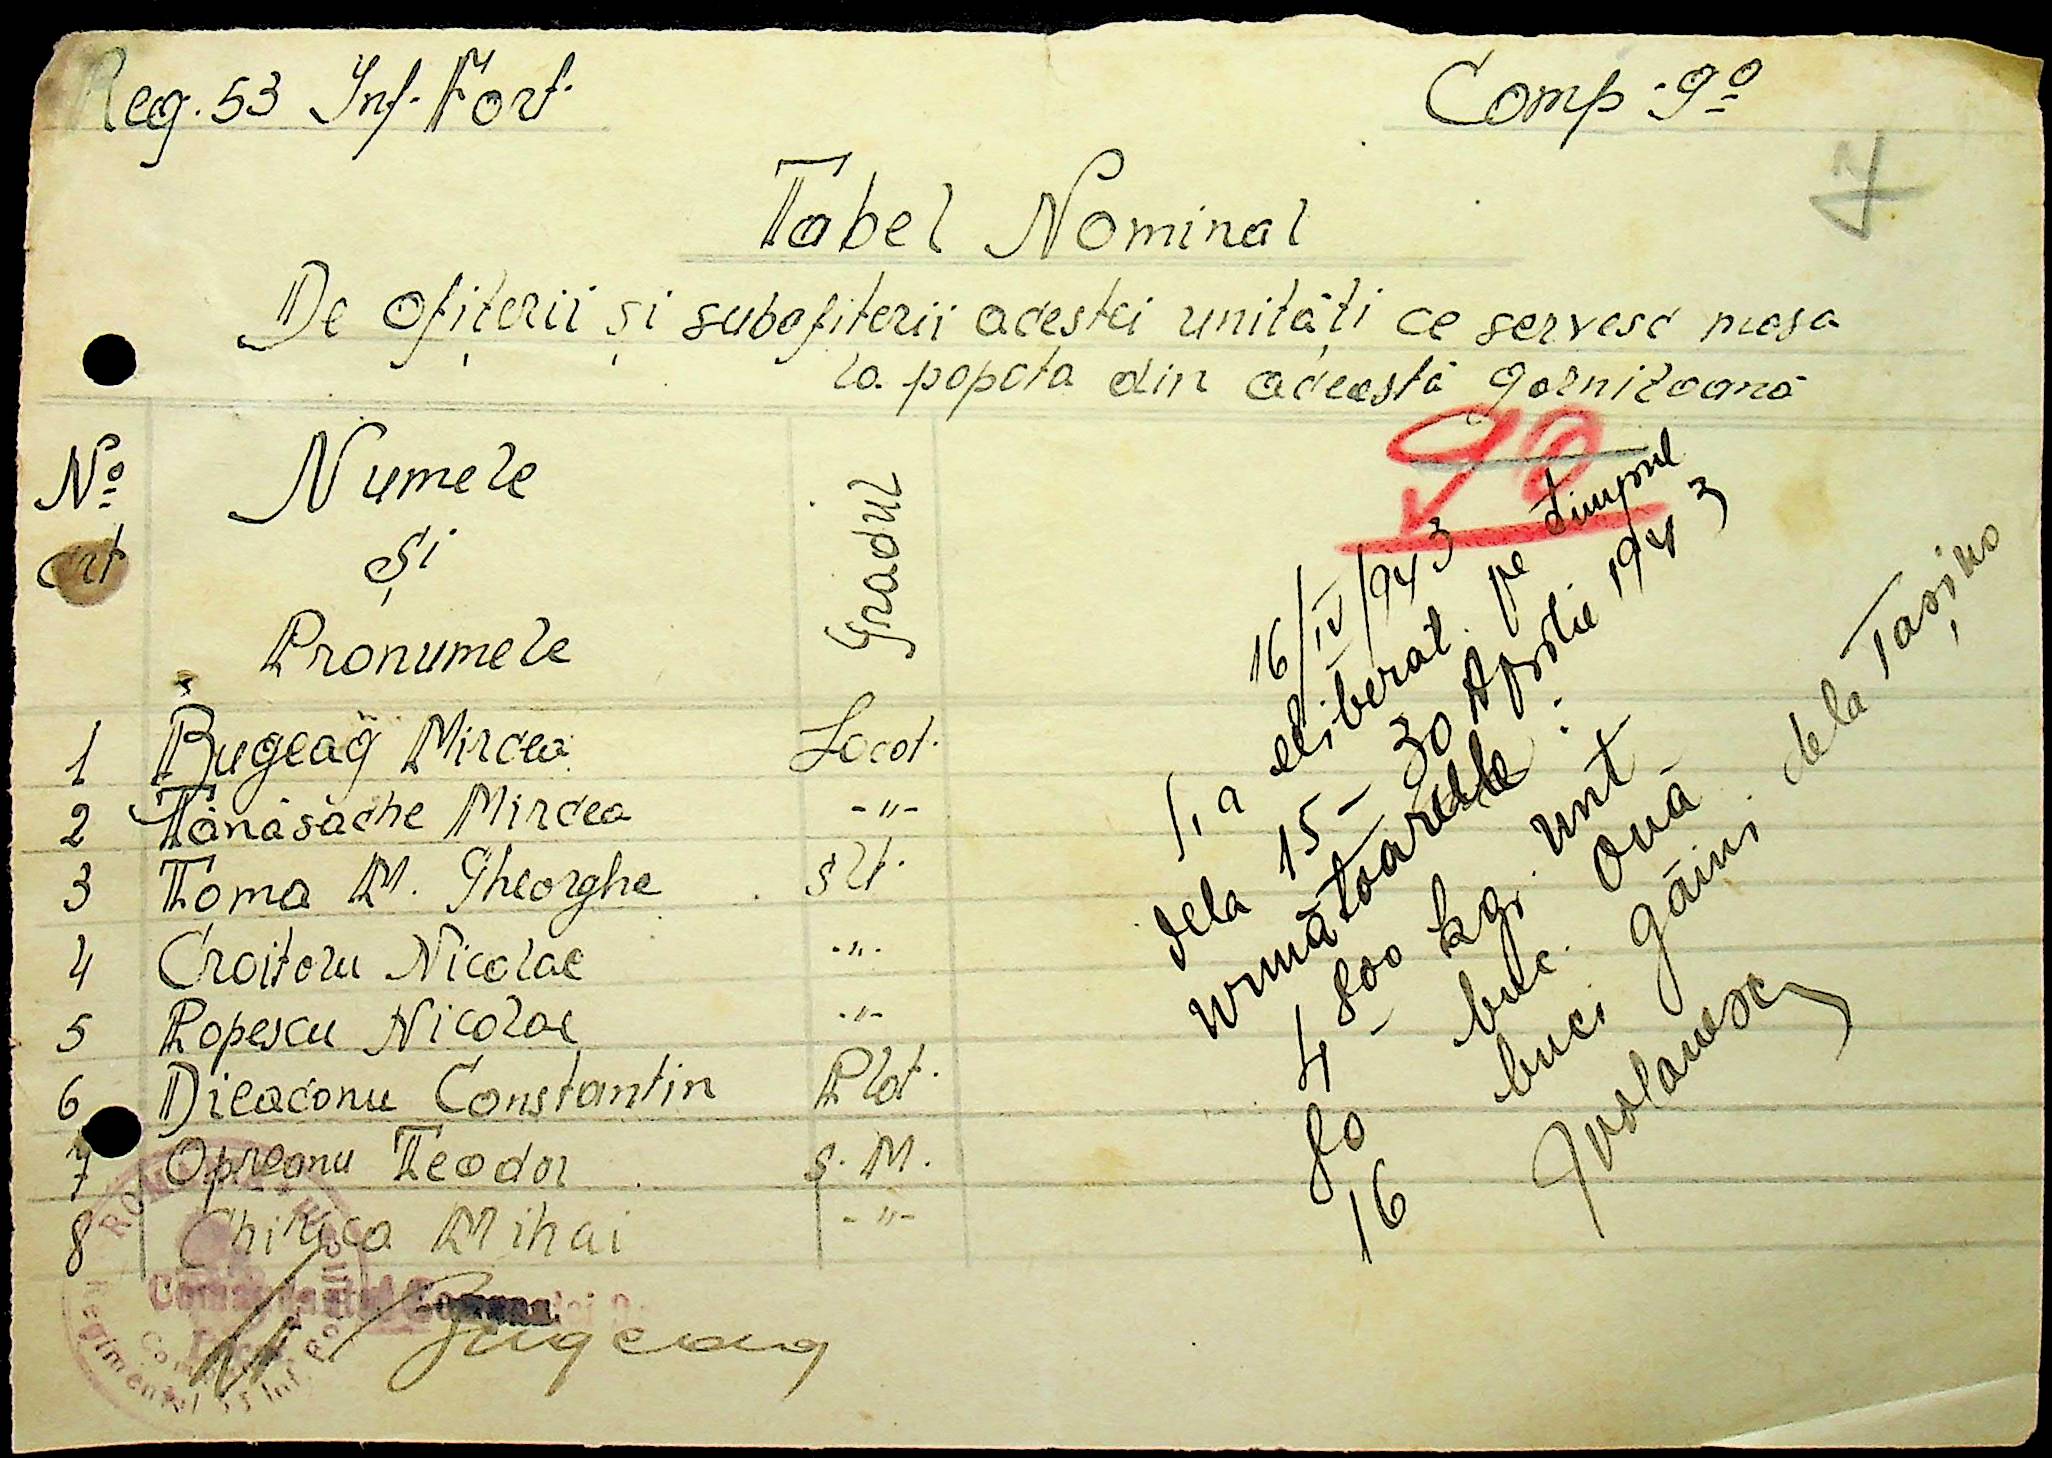 Reg. 53 Inf. Fort. Comp. 9º
7
Tabel Nominal
De ofițerii și subofițerii acestei unități ce servesc masa
la popota din această garnizoană
Nº crt Numele și Pronumele Gradul
1 Bugeag Mircea Locot.
2 Tănăsache Mircea -"-
3 Toma M. Gheorghe slt.
4 Croitoru Nicolae -"-
5 Popescu Nicolae -"-
6 Dieaconu Constantin Plot.
7 Opreanu Teodor s. M.
8 Mihai -"-
Comandantul
Regimentul 53 Inf.
Bugeag
98
16/IV/943
S'a eliberat pe timpul
dela 15 - 30 Aprilie 1943
următoarele:
4 800 kg. unt
80 - buc. ouă -
16 buc. găini dela